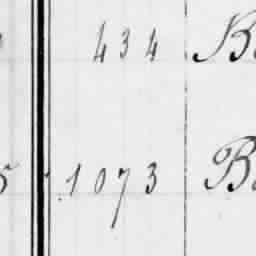 434 B
5 1073 B